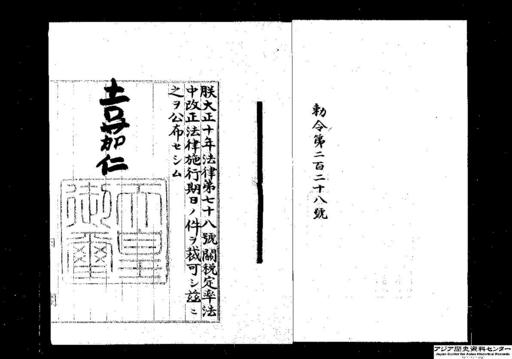 勅令第二百二十八號
朕大正十年法律第七十八號關稅定率法
中改正法律施行期日ノ件ヲ裁可シ茲ニ
之ヲ公布セシム
嘉仁
天皇
御璽
アジア歴史資料センター
Japan Center for Asian Historical Records